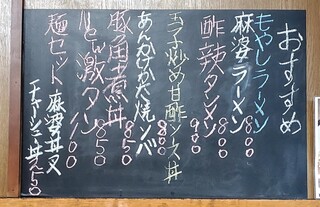 おすすめ
もやしラーメン
麻婆ラーメン 800
酢辣タンメン 900
玉子炒め甘酢ソース丼 800
あんかけかた焼ソバ 850
豚角煮丼 850
new激タン 1100
麺セット 麻婆丼又
チャーシュー丼 250